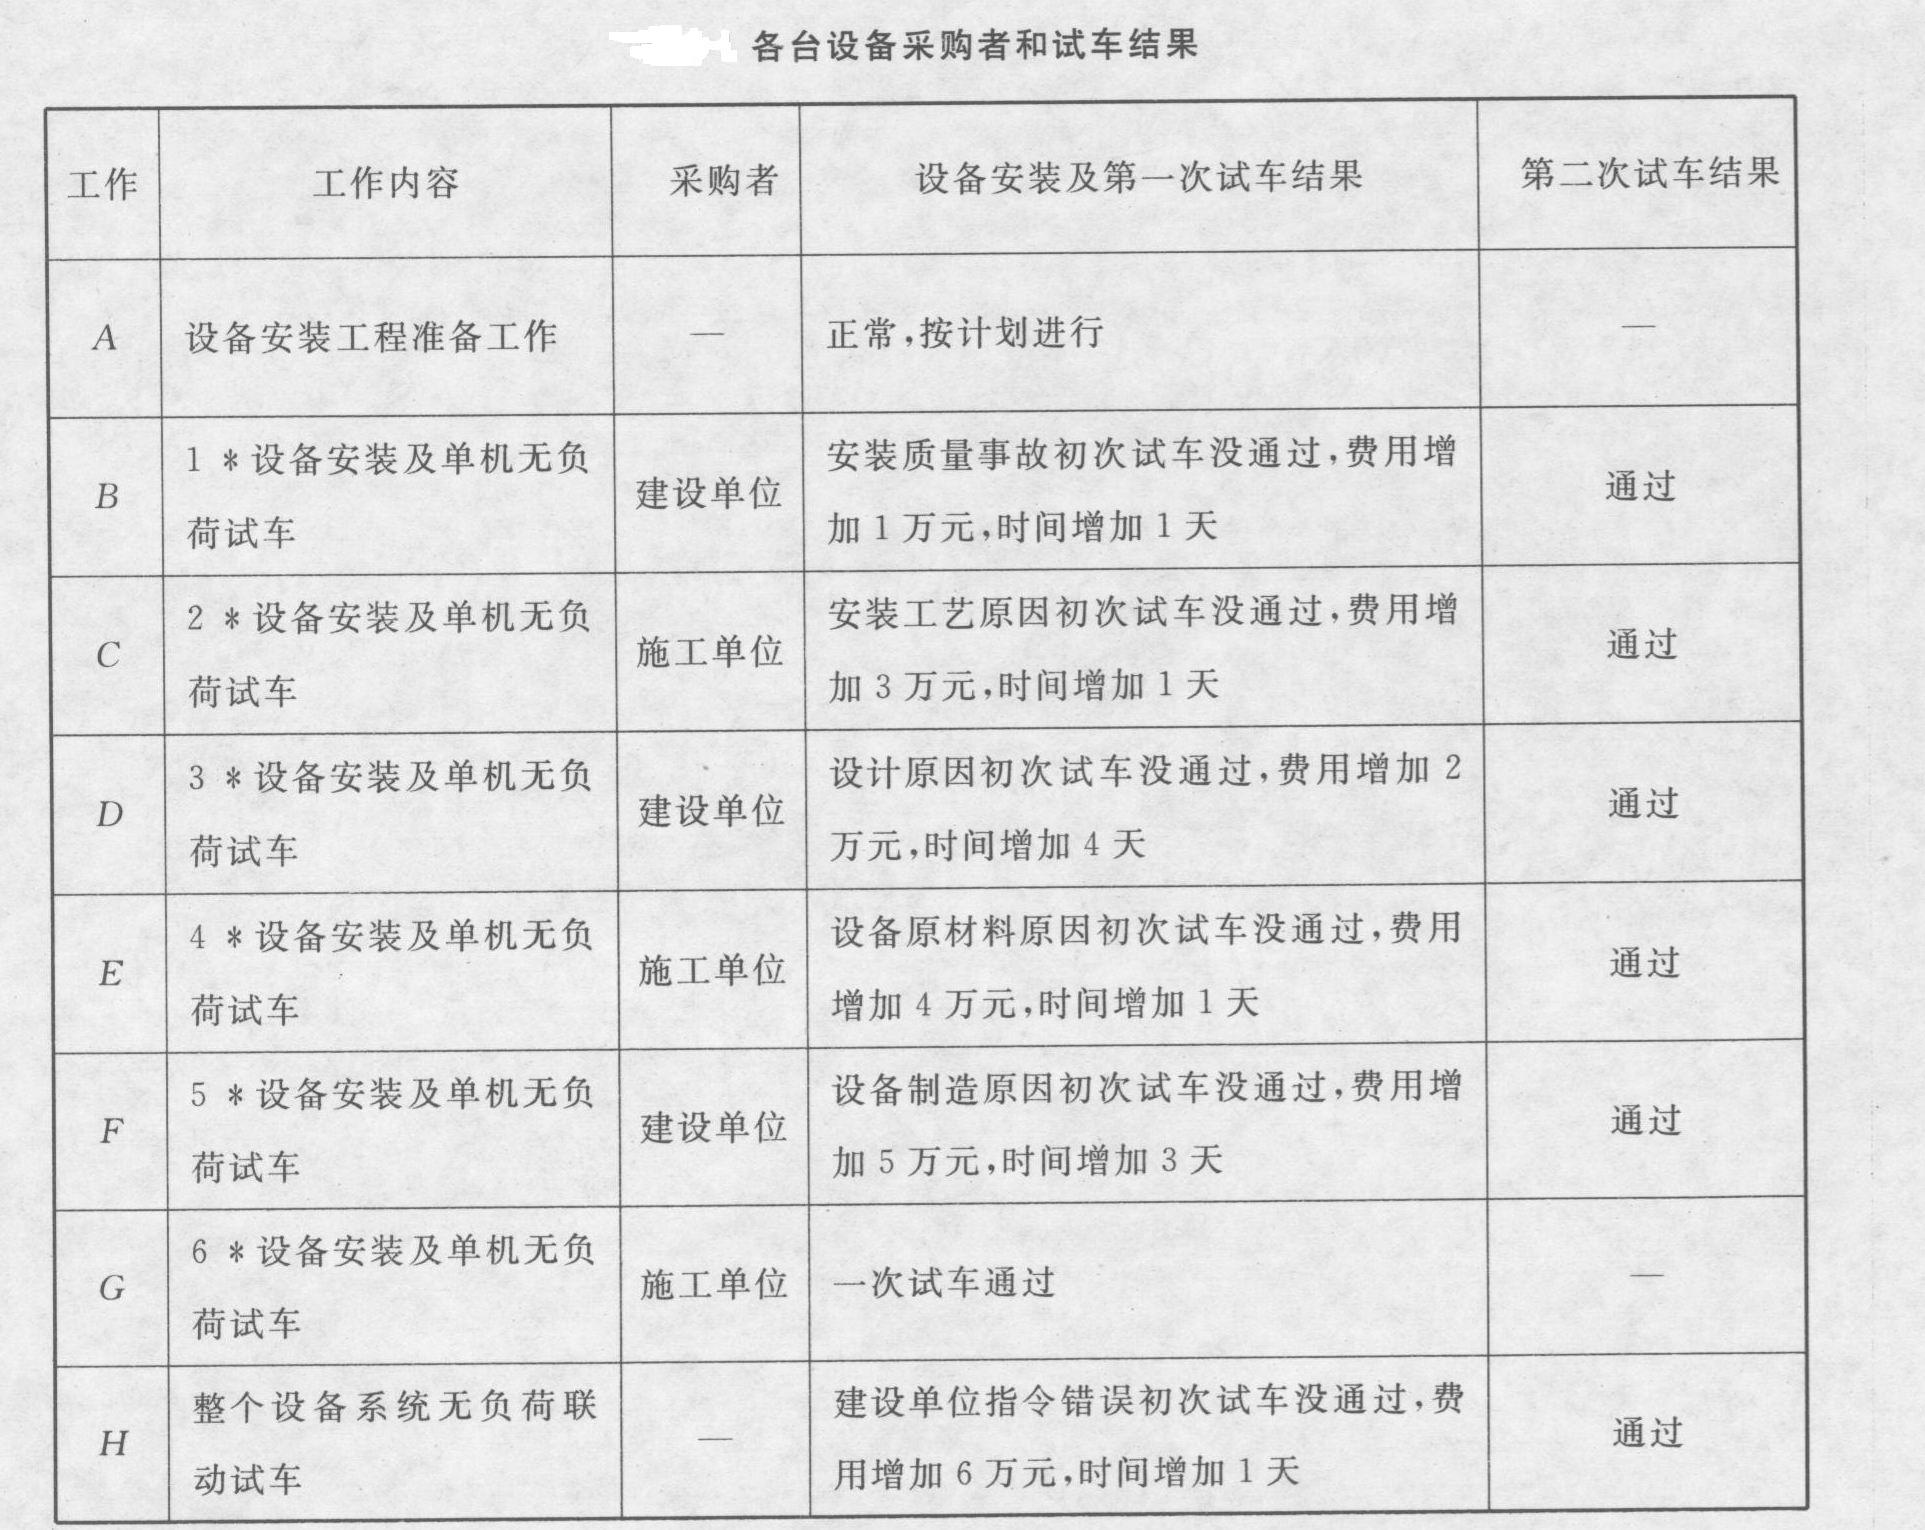 各台设备采购者和试车结果
工作 工作内容 采购者 设备安装及第一次试车结果 第二次试车结果
A 设备安装工程准备工作 — 正常,按计划进行 —
B
1*设备安装及单机无负
荷试车
建设单位
安装质量事故初次试车没通过,费用增
加1万元,时间增加1天
通过
C
2*设备安装及单机无负
荷试车
施工单位
安装工艺原因初次试车没通过,费用增
加3万元,时间增加1天
通过
D
3*设备安装及单机无负
荷试车
建设单位
设计原因初次试车没通过,费用增加2
万元,时间增加4天
通过
E
4*设备安装及单机无负
荷试车
施工单位
设备原材料原因初次试车没通过,费用
增加4万元,时间增加1天
通过
F
5*设备安装及单机无负
荷试车
建设单位
设备制造原因初次试车没通过,费用增
加5万元,时间增加3天
通过
G
6*设备安装及单机无负
荷试车
施工单位
一次试车通过
—
H
整个设备系统无负荷联
动试车
—
建设单位指令错误初次试车没通过,费
用增加6万元,时间增加1天
通过